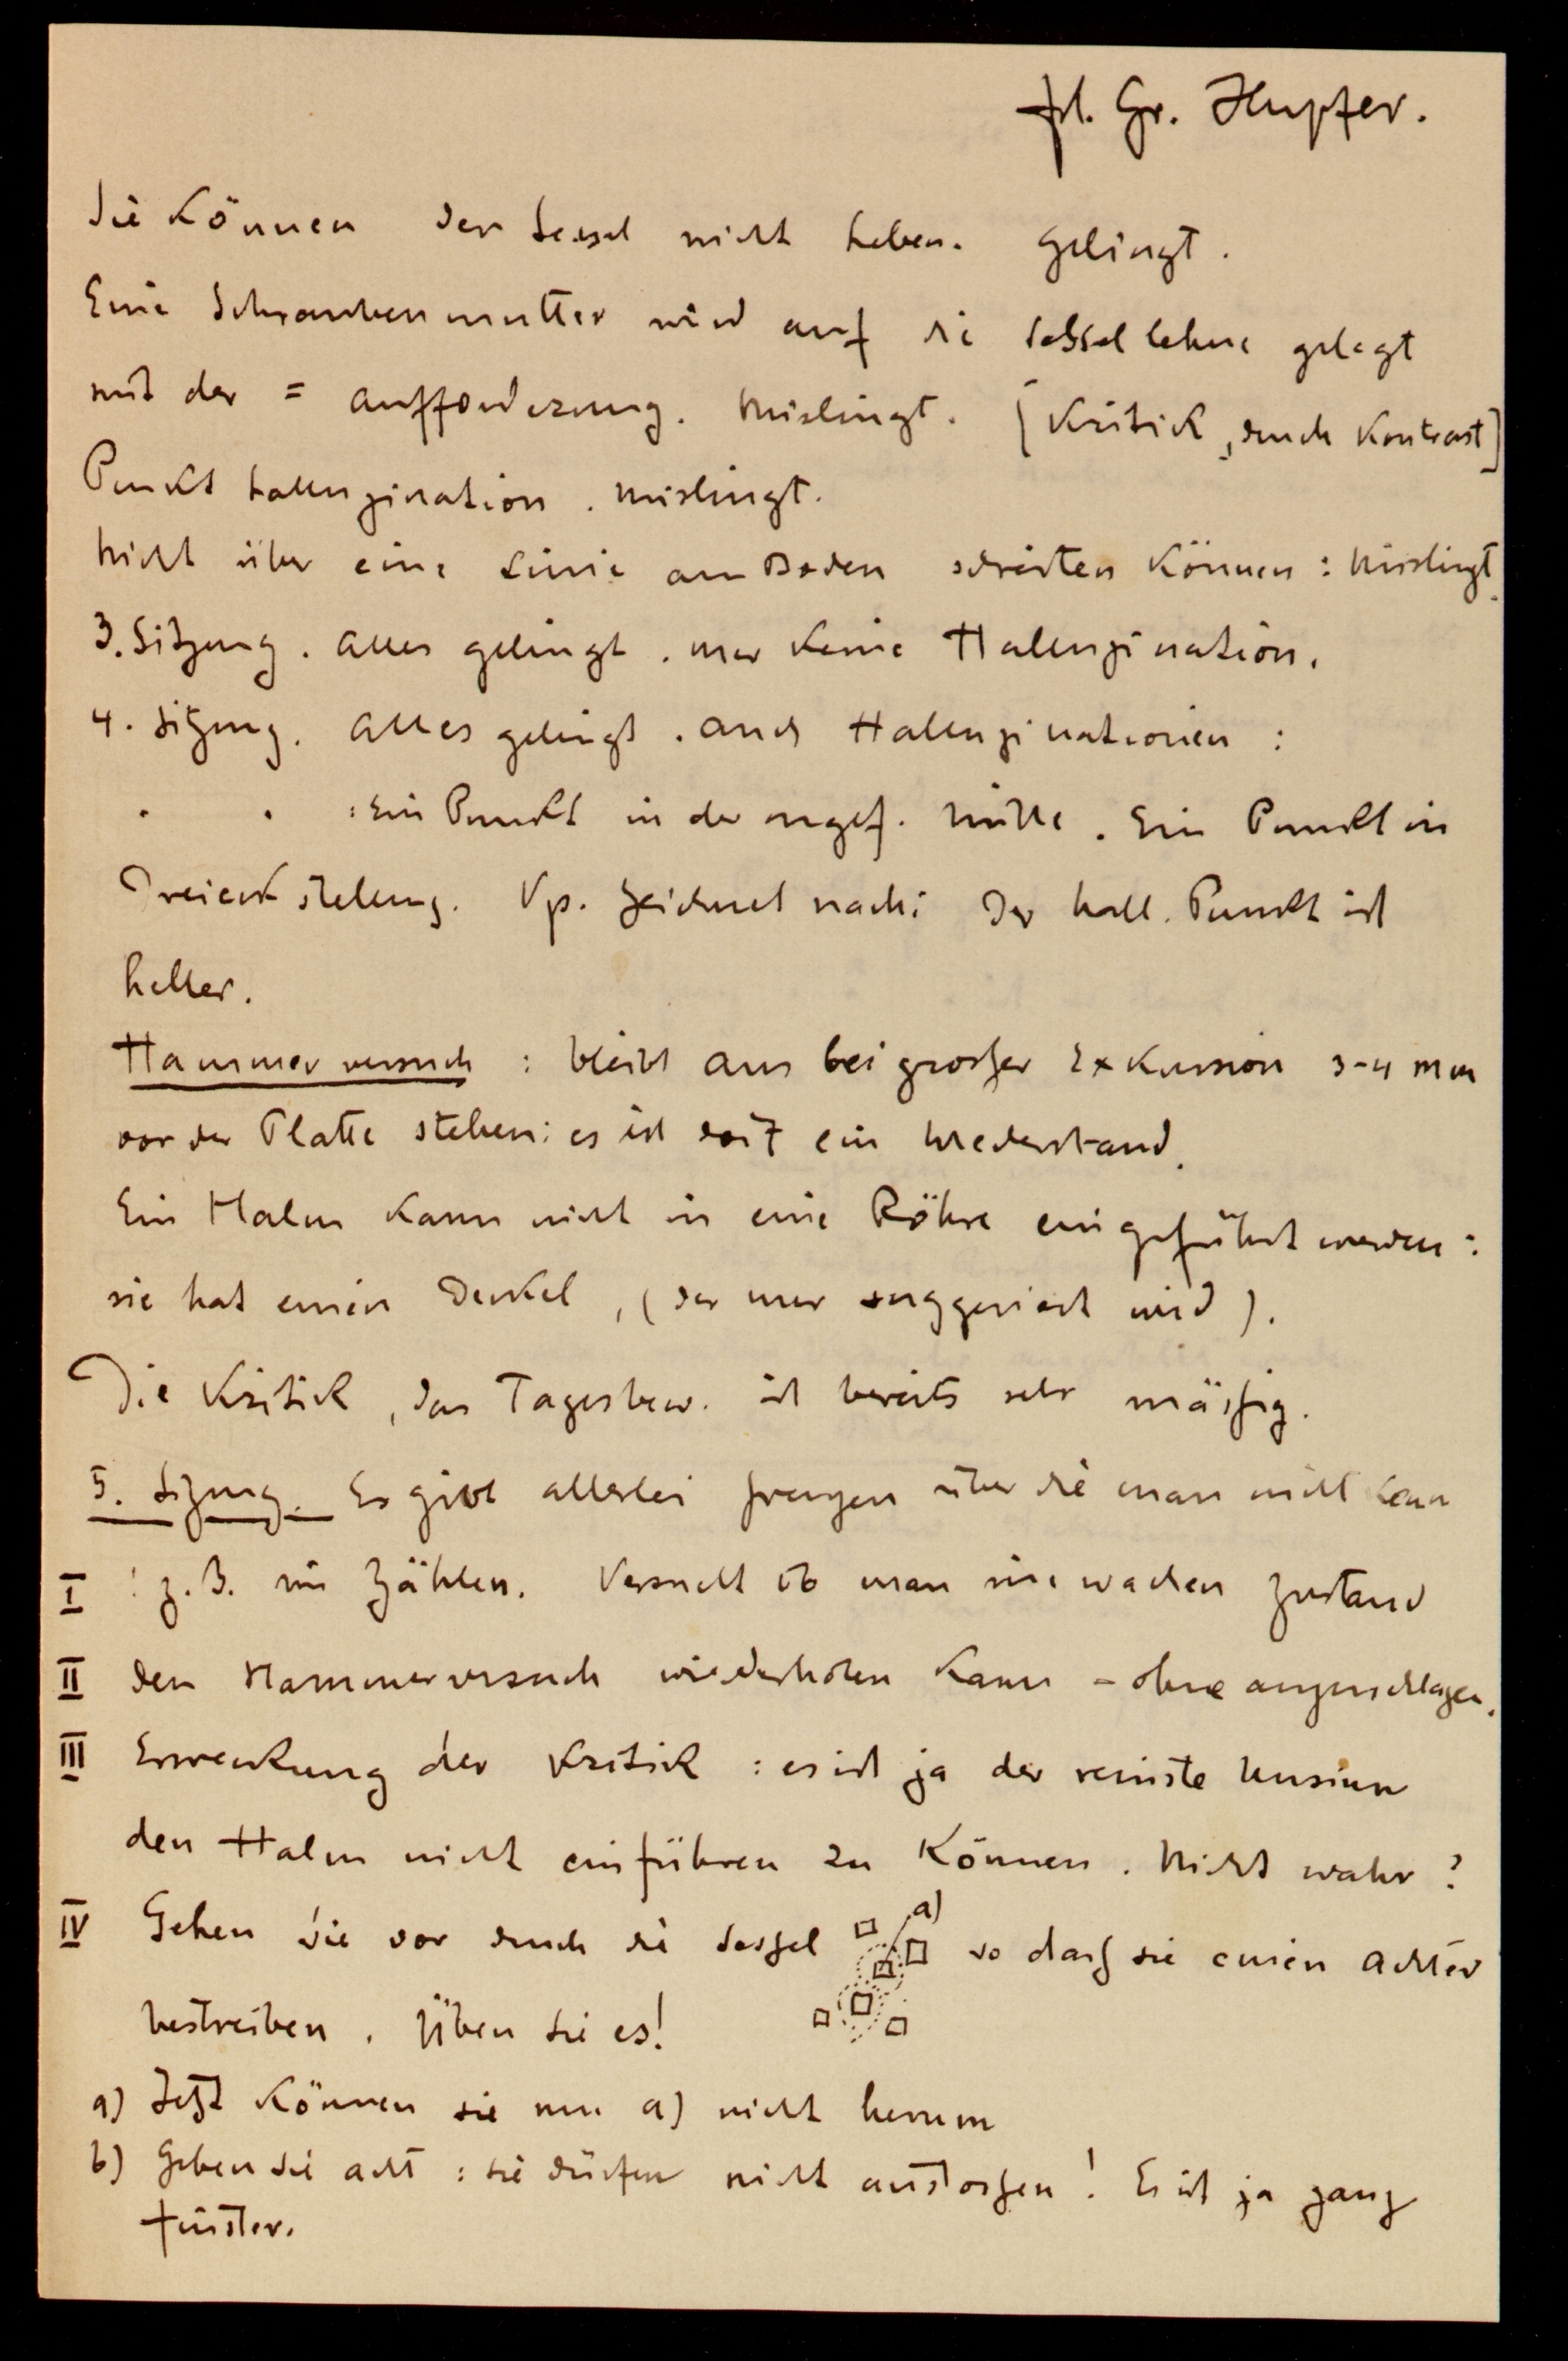 Frl. Gr. Hupfer.
Sie können den Sessel nicht heben. gelingt.
Eine Schraubenmutter wird auf die Sessellehne gelegt
mit der = aufforderung. Mislingt. [Kritik, durch Kontrast]
Punkt halluzination. mislingt.
Nicht über eine Linie am Boden schreiten können: Misslingt.
3. Sitzung. alles gelingt. nur keine Halluzination.
4. Sitzung. alles gelingt. auch Halluzinationen:
: Ein Punkt in der ungef. Mitte. Ein Punkt in
Dreieckstellung. Vp. zeichnet nach: Der hall. Punkt ist
heller.
Hammerversuch: bleibt aus bei großer Exkursion 3-4 mm
vor der Platte stehen: es ist dort ein Wiederstand.
Ein Halm kann nicht in eine Röhre eingeführt werden:
sie hat einen Deckel, (der nur suggeriert wird).
Die Kritik, das Tagesbew. ist bereits sehr mäßig.
5. Sitzung. Es gibt allerlei fragen über die man nicht kann
I : z.B. im Zählen. Versucht ob man im wachen Zustand
II den Hammerversuch wiederholen kann - ohne anzuschlagen.
III Erweckung der Kritik: es ist ja der reinste Unsinn
den Halm nicht einführen zu können. Nicht wahr?
IV Gehen Sie vor durch die Sessel a) so daß sie einen achter
bestreiben. Üben Sie es!
a) Jetzt können sie um a) nicht herum
b) Geben Sie acht: sie dürfen nicht anstoßen! Es ist ja ganz
finster.